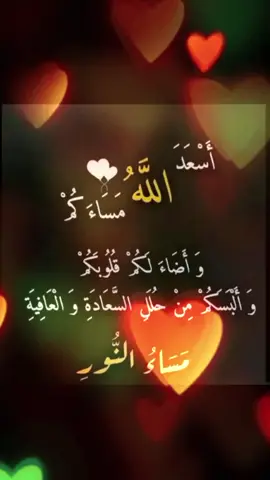 أَسْعَدَ
اللَّهُ
مَسَاءَكُمْ
وَ أَضَاءَ لَكُمْ قُلُوبَكُمْ
وَ أَلْبَسَكُمْ مِنْ حُلَلِ السَّعَادَةِ وَ الْعَافِيَةِ
مَسَاءُ النُّورِ